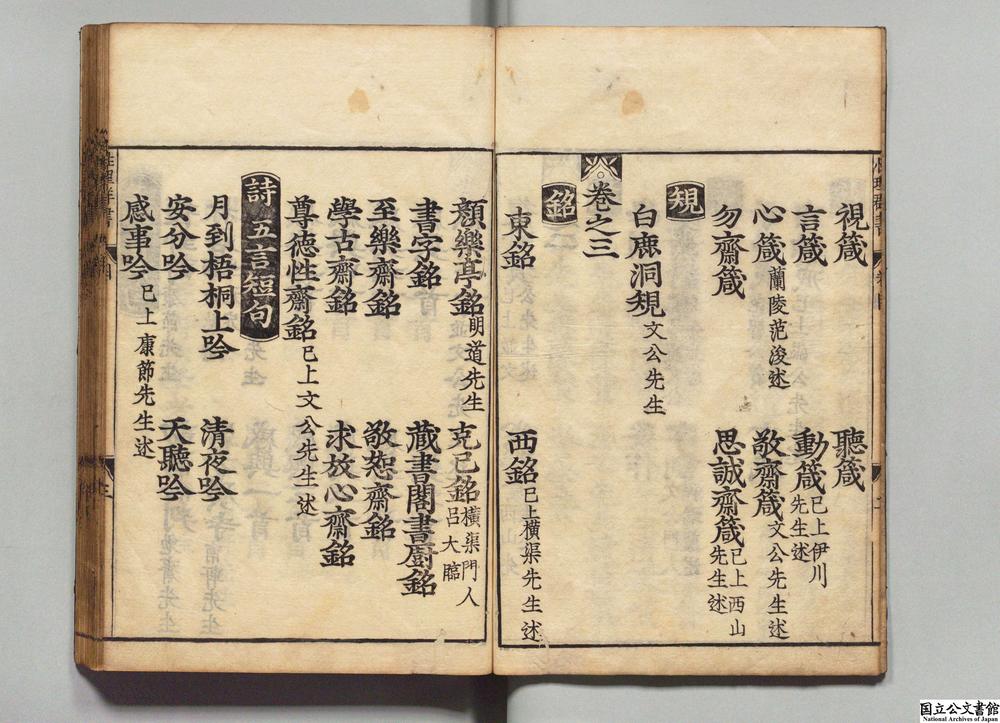 視箴 聽箴
言箴 動箴 已上伊川先生述
心箴 蘭陵范浚述 敬齋箴 文公先生述
勿齋箴 思誠齋箴 已上西山先生述
規
白鹿洞規 文公先生
卷之三
銘
東銘 西銘 已上横渠先生述
顏樂亭銘 明道先生 克己銘 横渠門人呂大臨
書字銘 藏書閣書廚銘
至樂齋銘 敬恕齋銘
學古齋銘 求放心齋銘
尊德性齋銘 已上文公先生述
詩 五言短句
月到梧桐上吟 清夜吟
安分吟 天聽吟
感事吟 已上康節先生述
国立公文書館
National Archives of Japan